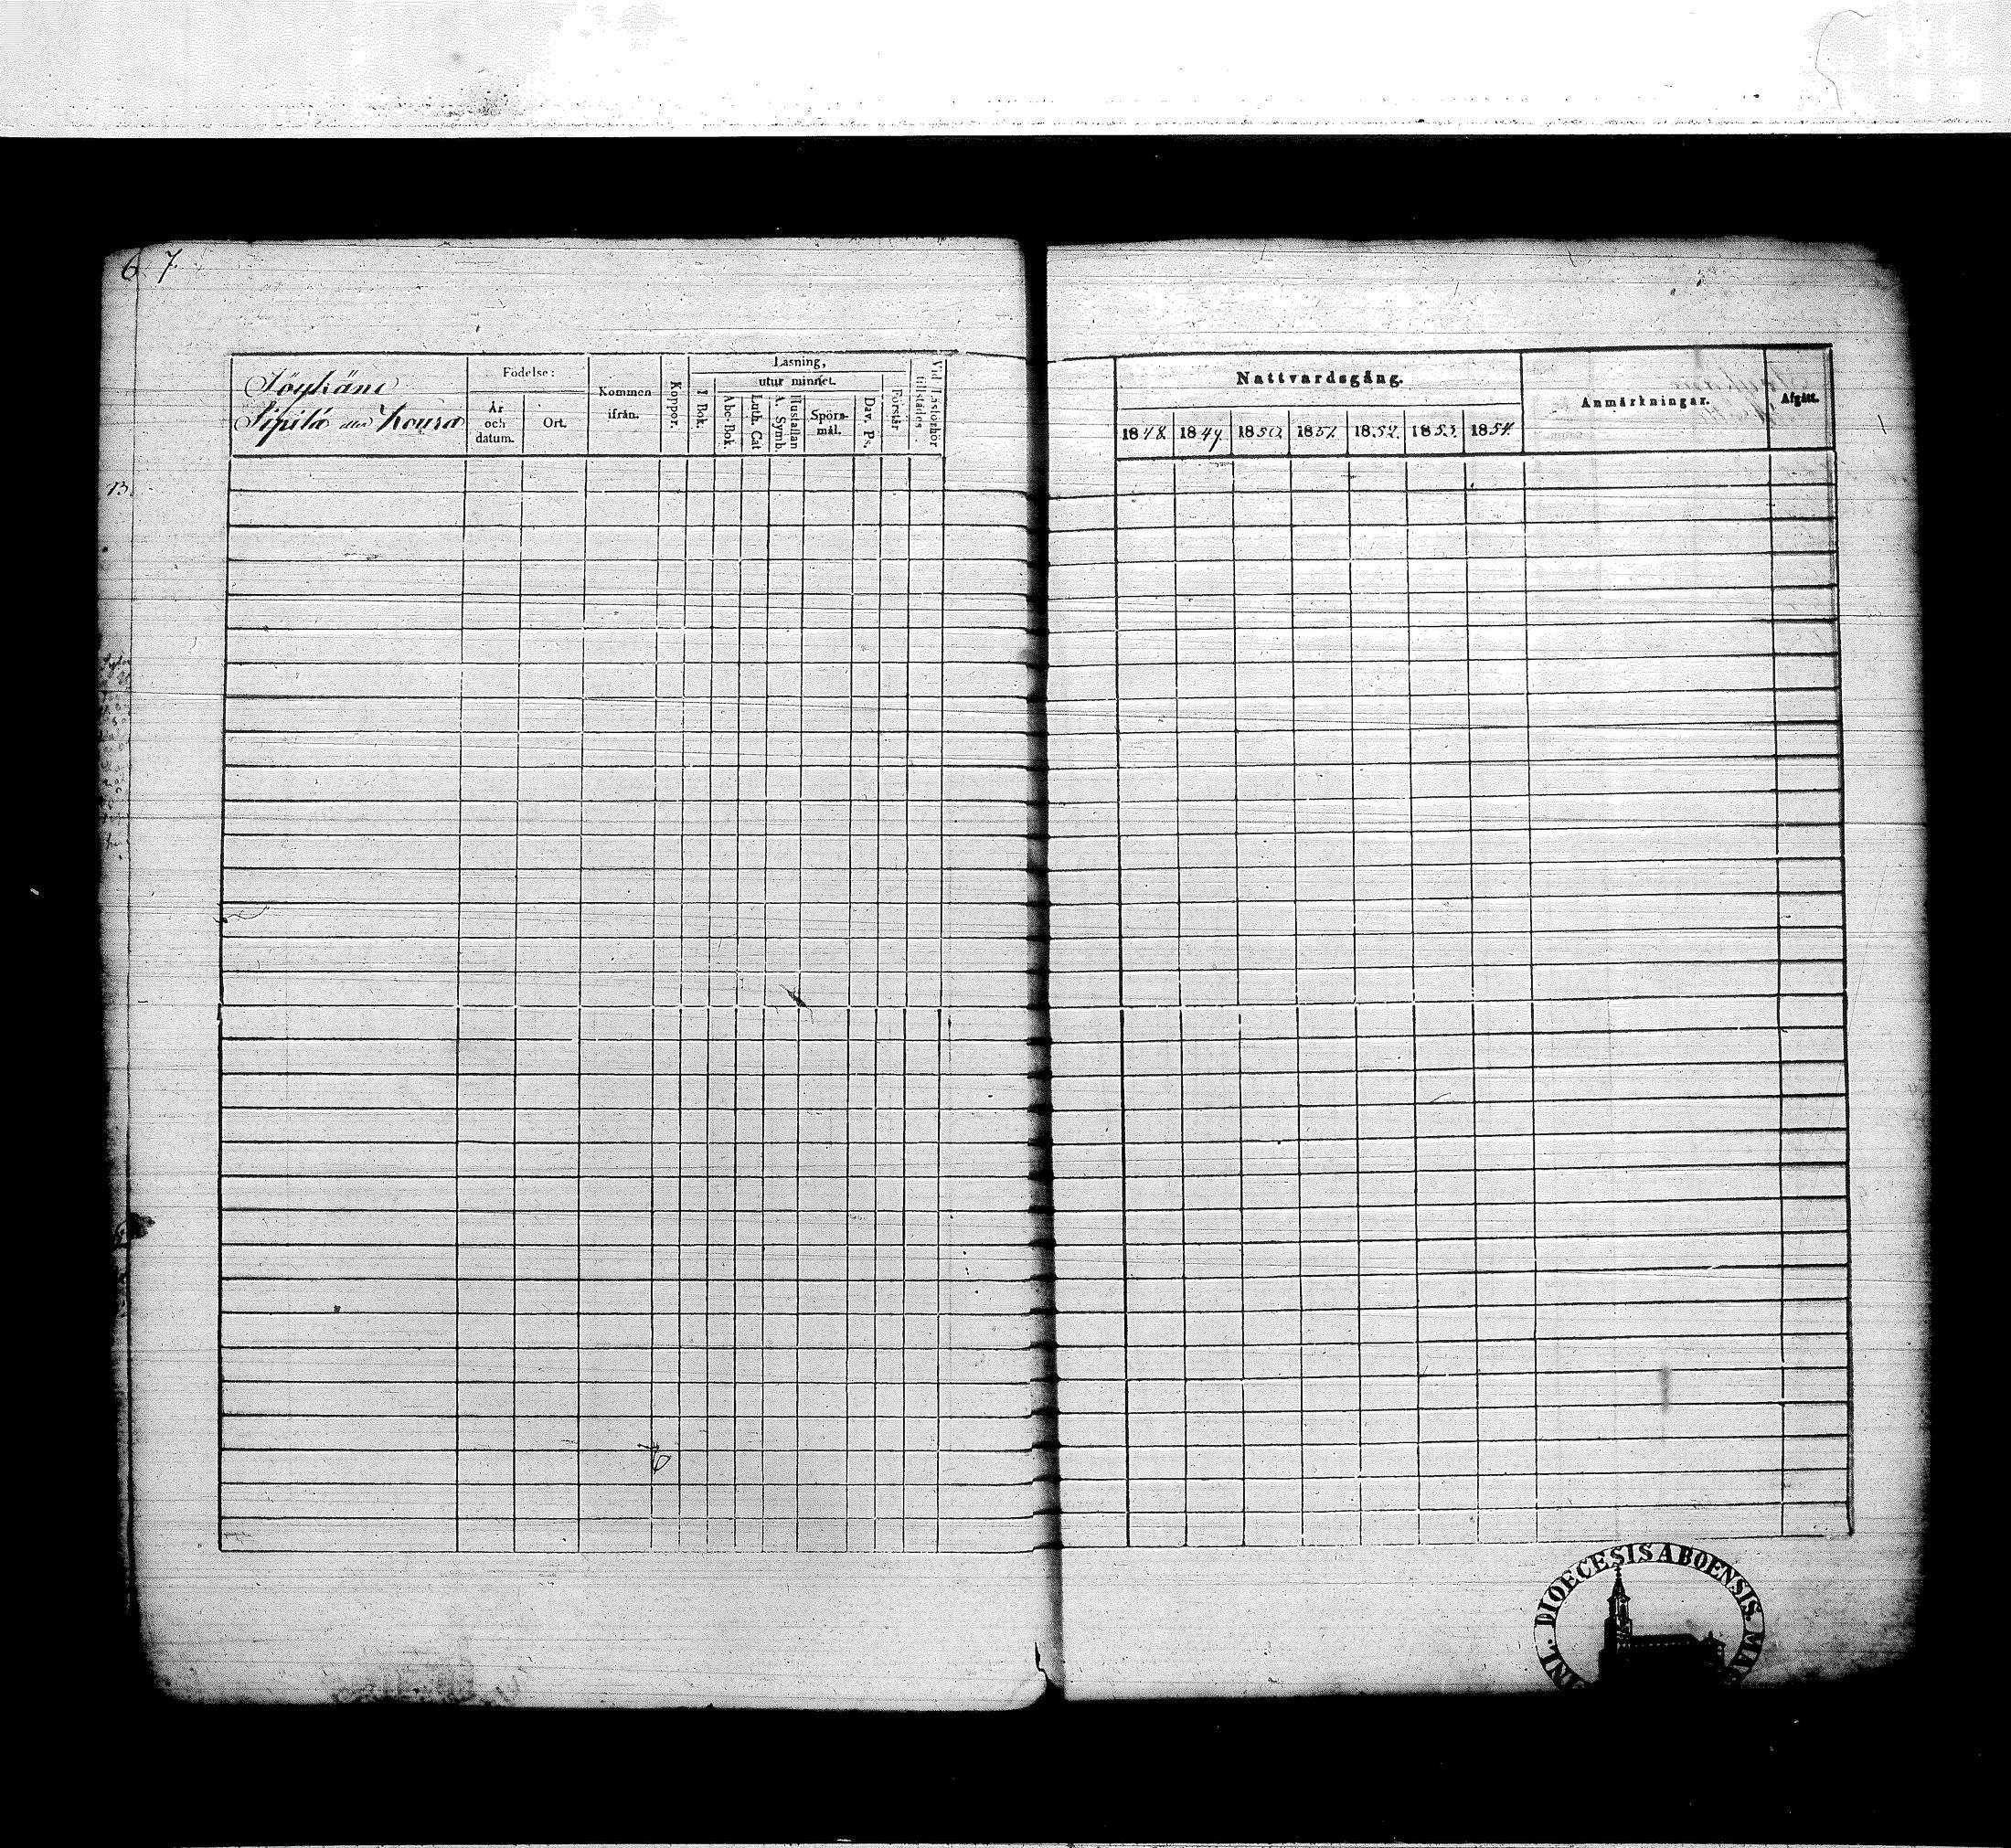 67
Söyhäni
Sipilä eller Koura
Födelse:
År och datum.
Ort.
Kommen ifrån.
Koppor.
Läsning,
I Bok.
utur minnet.
Abc-Bok.
Luth. Cat
A. Symb.
Hustaflan
Spörs-mål.
Dav. Ps.
Förstår
Vid Läsförhör tillstädes.
Nattvardsgång.
1848.
1849.
1850.
1851.
1852.
1853.
1854.
Anmärkningar.
Afgått.
13.
DIOECESIS ABOENSIS.